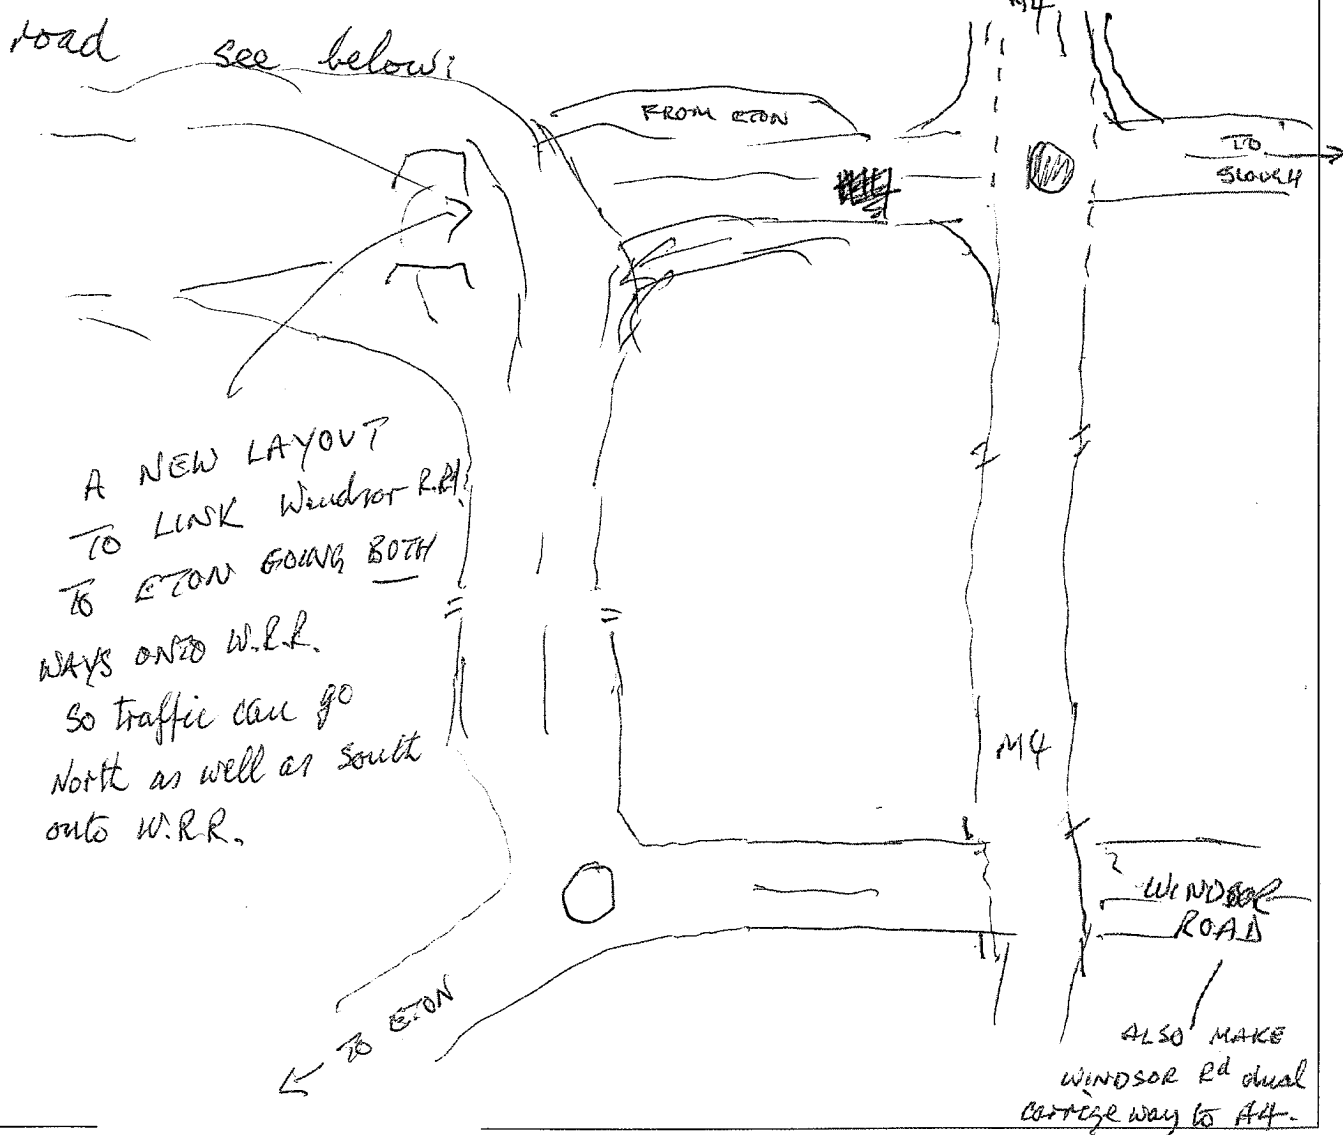 road see below:
M4
FROM ETON
TO
SLOUGH
A NEW LAYOUT
TO LINK Windsor R.Rd.
TO ETON GOING BOTH
WAYS ONTO W.R.R.
so traffic can go
North as well as south
onto W.R.R.
M4
WINDSOR
ROAD
TO ETON
ALSO MAKE
WINDSOR Rd dual
carrige way to A4.